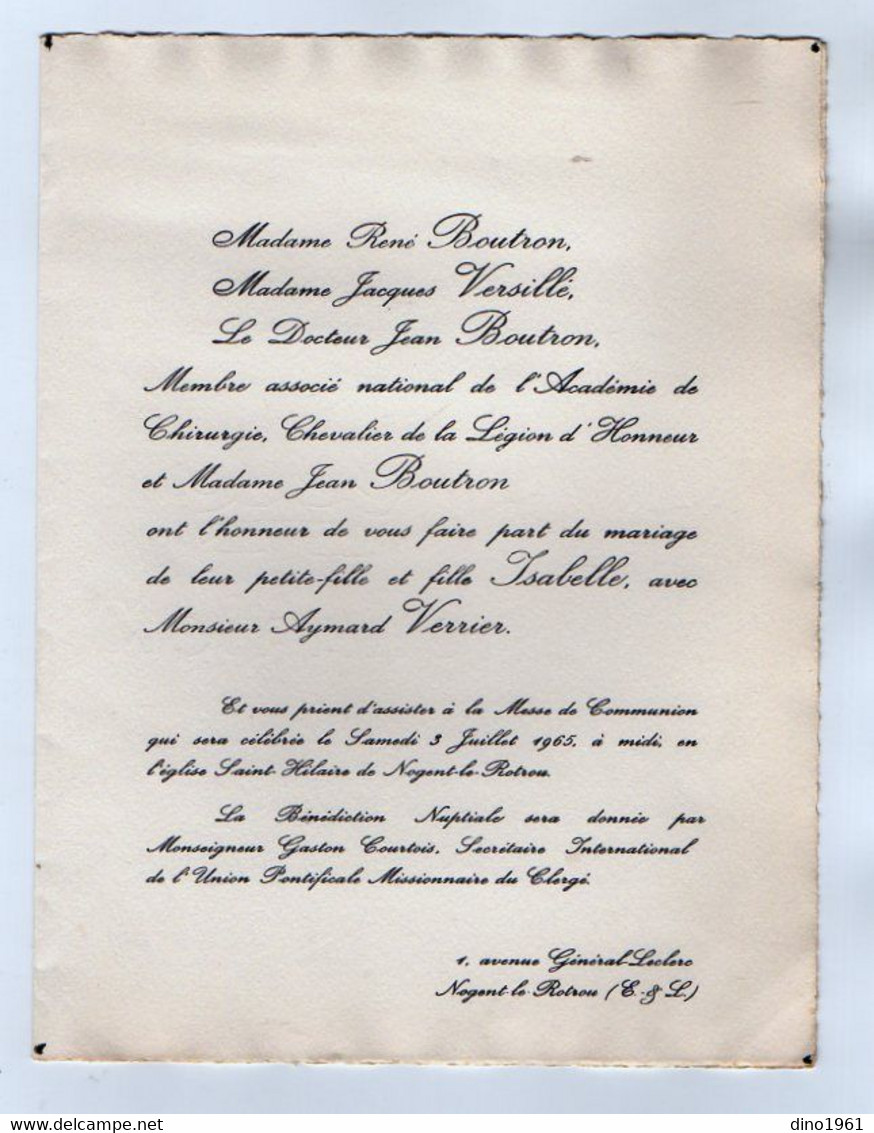 Madame René Boutron,
Madame Jacques Versillé,
Le Docteur Jean Boutron,
Membre associé national de l'Académie de
Chirurgie, Chevalier de la Légion d'Honneur
et Madame Jean Boutron
ont l'honneur de vous faire part du mariage
de leur petite-fille et fille Isabelle, avec
Monsieur Aymard Verrier.
Et vous prient d'assister à la Messe de Communion
qui sera célébrée le Samedi 3 Juillet 1965, à midi, en
l'église Saint-Hilaire de Nogent-le-Rotrou.
La Bénédiction Nuptiale sera donnée par
Monseigneur Gaston Courtois, Secrétaire International
de l'Union Pontificale Missionnaire du Clergé.
1, avenue Général-Leclerc
Nogent-le-Rotrou (E.-& L.)
dino1961